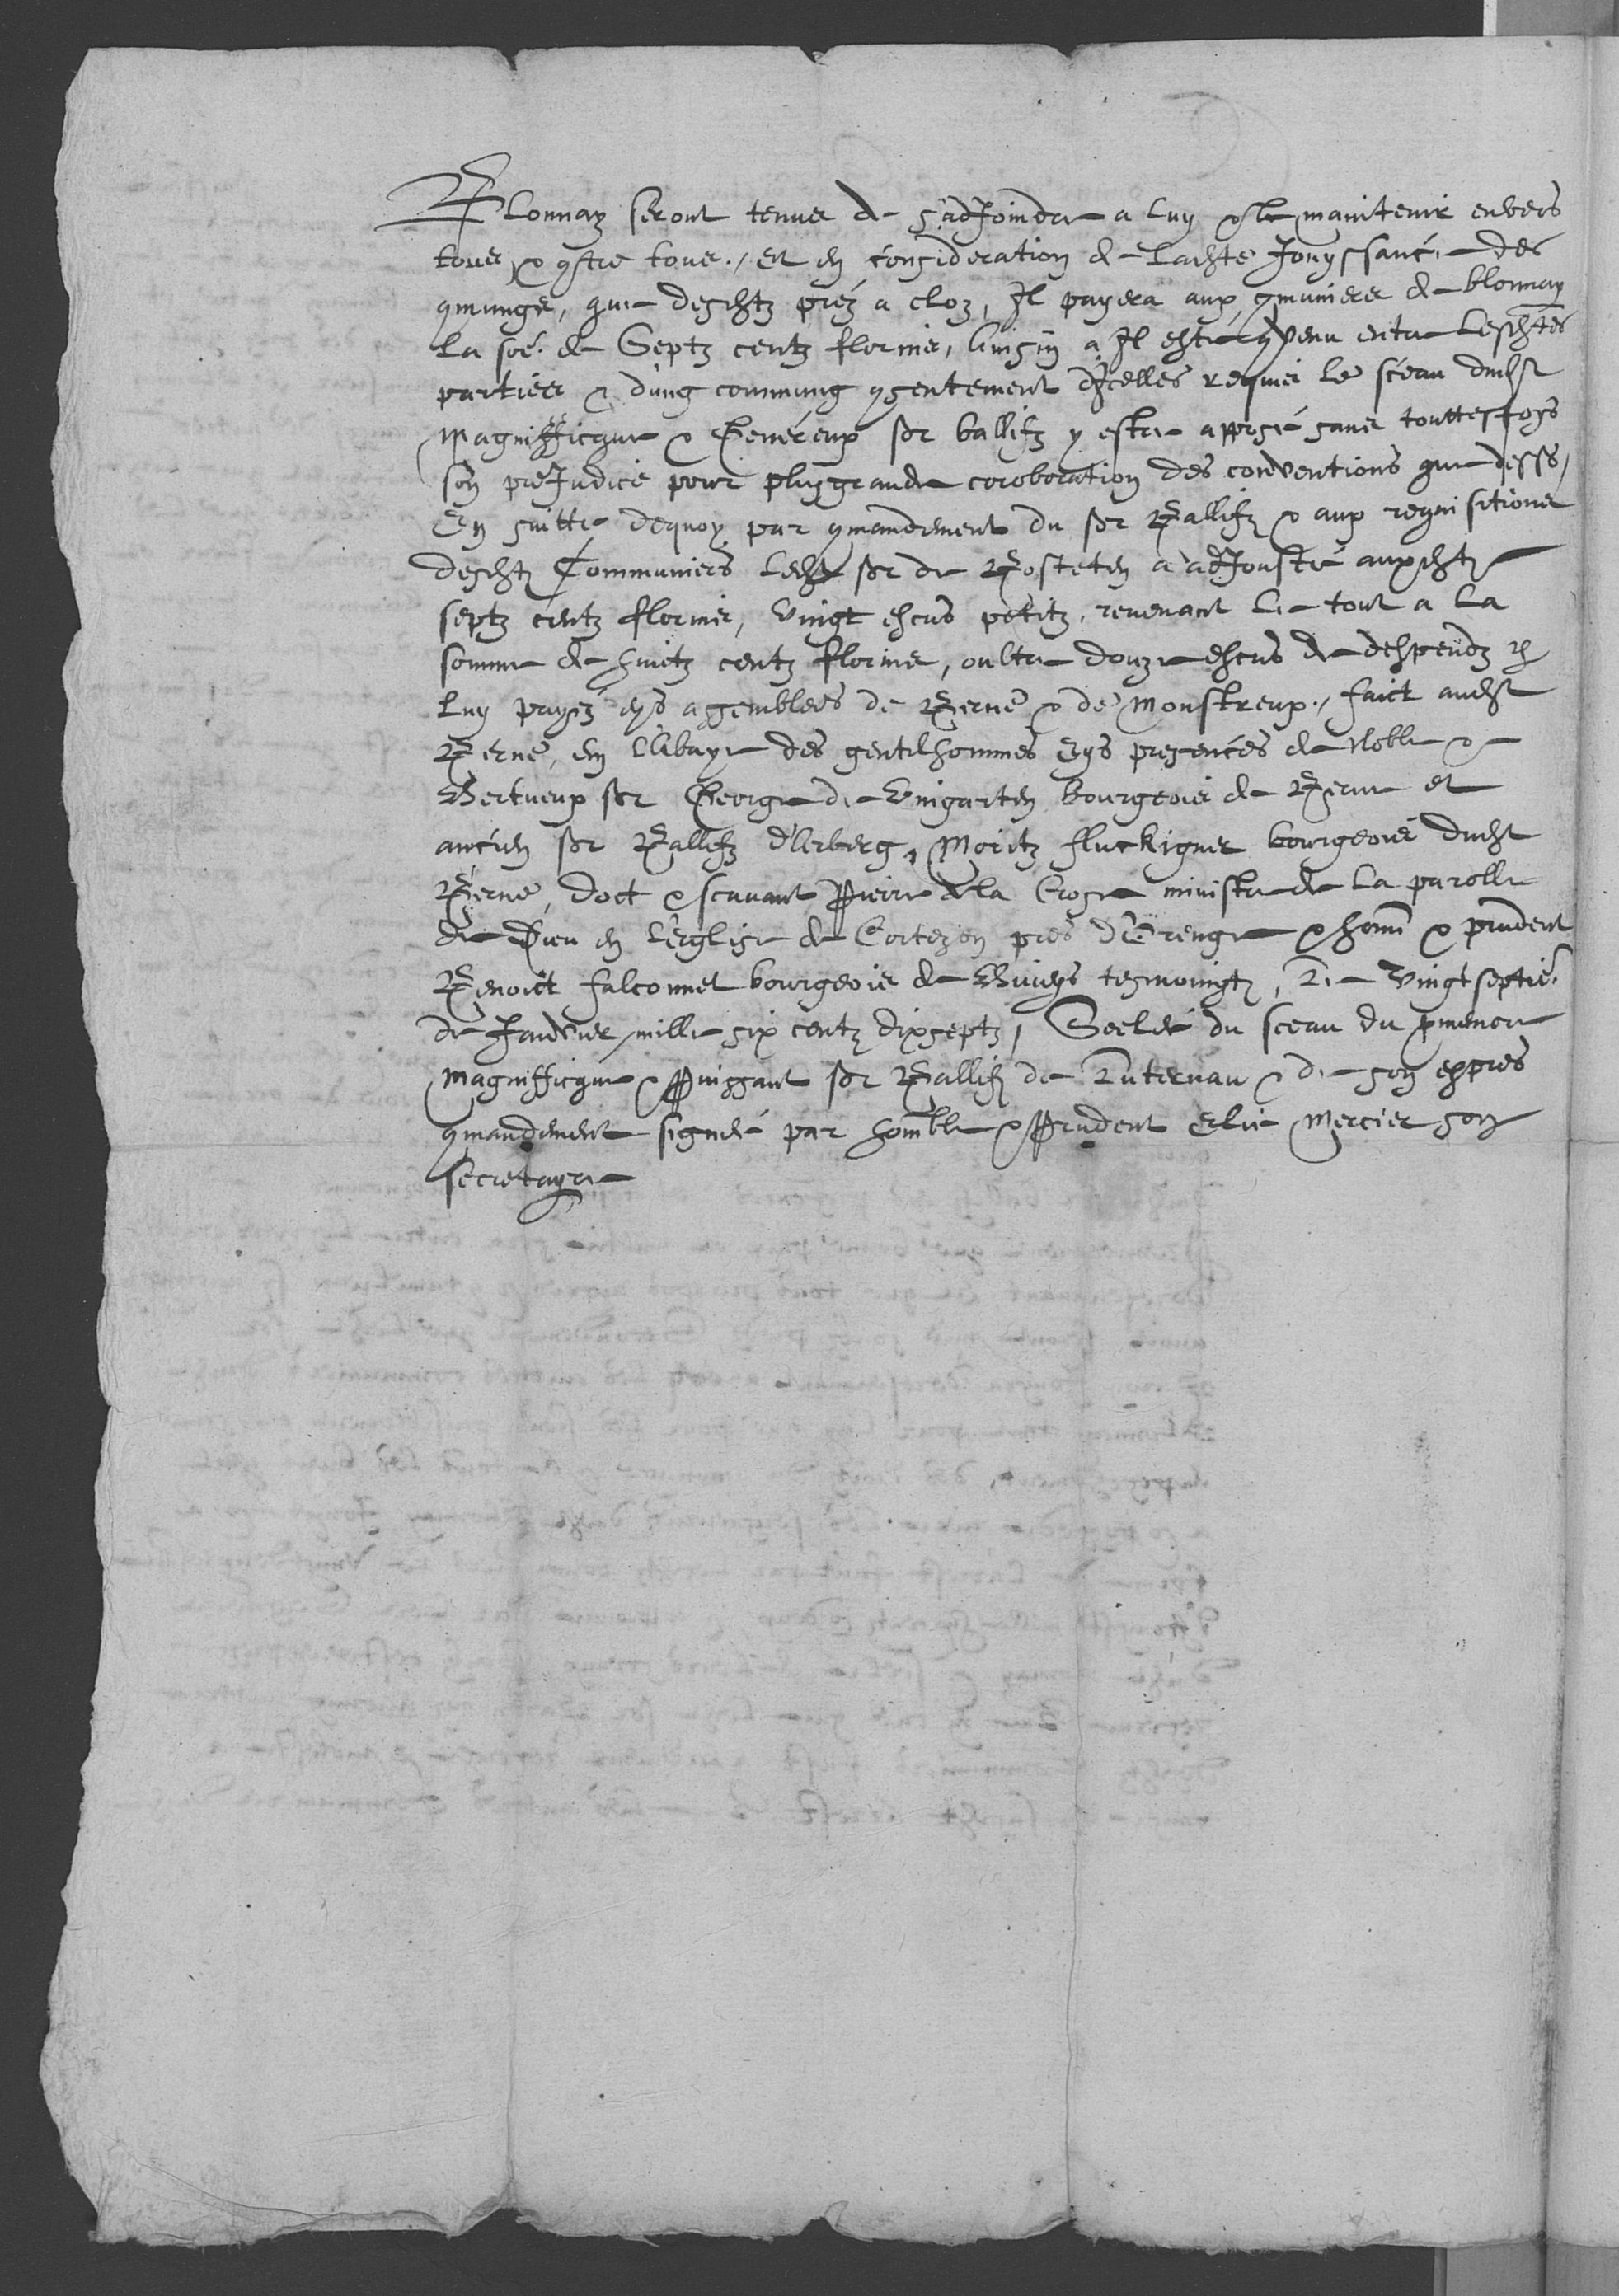 Blonnay seront tenus de s'adJoindre a luy & le maintenir envers
tous & 9tre tous ./ Et en consideration de ladte Jouyssance des
9mungs, que desdtz prez a cloz, Il payera aux 9muniers de blonnay
la soe. de Septz centz florins, Ainsin a Il esté 9venu entre lesdtes
parties & d'ung commung 9sentement d'Icelles requis le sceau dudt
Magnifficque & Genereux sr ballifz y estre apposé sans touttesfoys
son preJudice pour plusgrande coroboration des conventions que dessus /
En suitte dequoy par 9mandement du sr Ballifz & aux requisitions
desdtz Communiers ledt sr de Rosteten a adJousté auxdtz
septz centz florins, vingt escus petitz, revenant le tout a la
somme de huietz centz florins, oultre douze escus de despendz
luy payéz eys assemblees de Berne & de Monstreux ./ faict audt
Berne, en l'Abaye des gentilshommes Eys presences de Noble &
Vertueux sr George de Vingarten bourgeois de Berne et
ancien sr Ballifz d'Arberg, Moritz fluckiguer bourgeois dudt
Berne, doct & scavant Pierre de la Crose ministre de la parolle
de Dieu en l'eglise de Cortezon pres d'Orenge & honn & prudent
Benoict falconnet bourgeois de Viveys tesmoingtz, Le Vingt septie.
de Janvier mille six centz dixseptz, Seelé du sceau du prenomé
Magnifficque & Puissant sr Ballifz de Luternau & de son expres
9mandement signé par honnble & Prudent Elie Mercier son
secretayre